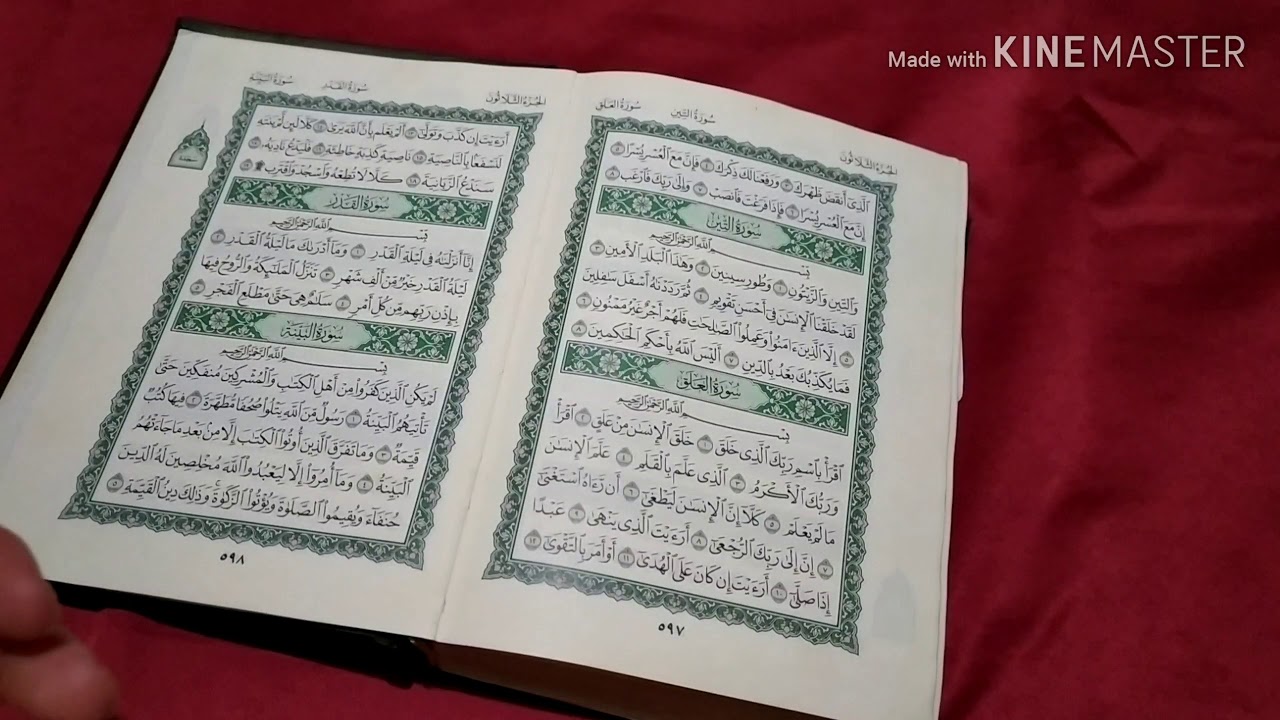 Made with KINEMASTER
سورة العلق سورة التين الجزء الثلاثون
الَّذِي أَنقَضَ ظَهْرَكَ ٣ وَرَفَعْنَا لَكَ ذِكْرَكَ ٤ فَإِنَّ مَعَ الْعُسْرِ يُسْرًا ٥
إِنَّ مَعَ الْعُسْرِ يُسْرًا ٦ فَإِذَا فَرَغْتَ فَانصَبْ ٧ وَإِلَىٰ رَبِّكَ فَارْغَب ٨
سُورَةُ التِّينِ
بِسْمِ اللَّهِ الرَّحْمَٰنِ الرَّحِيمِ
وَالتِّينِ وَالزَّيْتُونِ ١ وَطُورِ سِينِينَ ٢ وَهَٰذَا الْبَلَدِ الْأَمِينِ ٣
لَقَدْ خَلَقْنَا الْإِنسَٰنَ فِي أَحْسَنِ تَقْوِيمٍ ٤ ثُمَّ رَدَدْنَٰهُ أَسْفَلَ سَٰفِلِينَ
٥ إِلَّا الَّذِينَ ءَامَنُوا وَعَمِلُوا الصَّٰلِحَٰتِ فَلَهُمْ أَجْرٌ غَيْرُ مَمْنُونٍ ٦
فَمَا يُكَذِّبُكَ بَعْدُ بِالدِّينِ ٧ أَلَيْسَ اللَّهُ بِأَحْكَمِ الْحَٰكِمِينَ ٨
سُورَةُ الْعَلَقِ
بِسْمِ اللَّهِ الرَّحْمَٰنِ الرَّحِيمِ
اقْرَأْ بِاسْمِ رَبِّكَ الَّذِي خَلَقَ ١ خَلَقَ الْإِنسَٰنَ مِنْ عَلَقٍ ٢ اقْرَأْ
وَرَبُّكَ الْأَكْرَمُ ٣ الَّذِي عَلَّمَ بِالْقَلَمِ ٤ عَلَّمَ الْإِنسَٰنَ
مَا لَمْ يَعْلَمْ ٥ كَلَّا إِنَّ الْإِنسَٰنَ لَيَطْغَىٰ ٦ أَن رَّءَاهُ اسْتَغْنَىٰ
٧ إِنَّ إِلَىٰ رَبِّكَ الرُّجْعَىٰ ٨ أَرَءَيْتَ الَّذِي يَنْهَىٰ ٩ عَبْدًا
إِذَا صَلَّىٰ ١٠ أَرَءَيْتَ إِن كَانَ عَلَى الْهُدَىٰ ١١ أَوْ أَمَرَ بِالتَّقْوَىٰ ١٢
٥٩٧
سورة البينة سورة القدر الجزء الثلاثون
أَرَءَيْتَ إِن كَذَّبَ وَتَوَلَّىٰ ١٣ أَلَمْ يَعْلَم بِأَنَّ اللَّهَ يَرَىٰ ١٤ كَلَّا لَئِن لَّمْ يَنتَهِ
لَنَسْفَعًا بِالنَّاصِيَةِ ١٥ نَاصِيَةٍ كَٰذِبَةٍ خَاطِئَةٍ ١٦ فَلْيَدْعُ نَادِيَهُۥ ١٧
سَنَدْعُ الزَّبَانِيَةَ ١٨ كَلَّا لَا تُطِعْهُ وَاسْجُدْ وَاقْتَرِب ۩ ١٩
سجدة
سُورَةُ الْقَدْرِ
بِسْمِ اللَّهِ الرَّحْمَٰنِ الرَّحِيمِ
إِنَّا أَنزَلْنَٰهُ فِي لَيْلَةِ الْقَدْرِ ١ وَمَا أَدْرَىٰكَ مَا لَيْلَةُ الْقَدْرِ ٢
لَيْلَةُ الْقَدْرِ خَيْرٌ مِّنْ أَلْفِ شَهْرٍ ٣ تَنَزَّلُ الْمَلَٰئِكَةُ وَالرُّوحُ فِيهَا
بِإِذْنِ رَبِّهِم مِّن كُلِّ أَمْرٍ ٤ سَلَٰمٌ هِيَ حَتَّىٰ مَطْلَعِ الْفَجْرِ ٥
سُورَةُ الْبَيِّنَةِ
بِسْمِ اللَّهِ الرَّحْمَٰنِ الرَّحِيمِ
لَمْ يَكُنِ الَّذِينَ كَفَرُوا مِنْ أَهْلِ الْكِتَٰبِ وَالْمُشْرِكِينَ مُنفَكِّينَ حَتَّىٰ
تَأْتِيَهُمُ الْبَيِّنَةُ ١ رَسُولٌ مِّنَ اللَّهِ يَتْلُوا صُحُفًا مُّطَهَّرَةً ٢ فِيهَا كُتُبٌ
قَيِّمَةٌ ٣ وَمَا تَفَرَّقَ الَّذِينَ أُوتُوا الْكِتَٰبَ إِلَّا مِن بَعْدِ مَا جَاءَتْهُمُ
الْبَيِّنَةُ ٤ وَمَا أُمِرُوا إِلَّا لِيَعْبُدُوا اللَّهَ مُخْلِصِينَ لَهُ الدِّينَ
حُنَفَاءَ وَيُقِيمُوا الصَّلَوٰةَ وَيُؤْتُوا الزَّكَوٰةَ وَذَٰلِكَ دِينُ الْقَيِّمَةِ ٥
٥٩٨